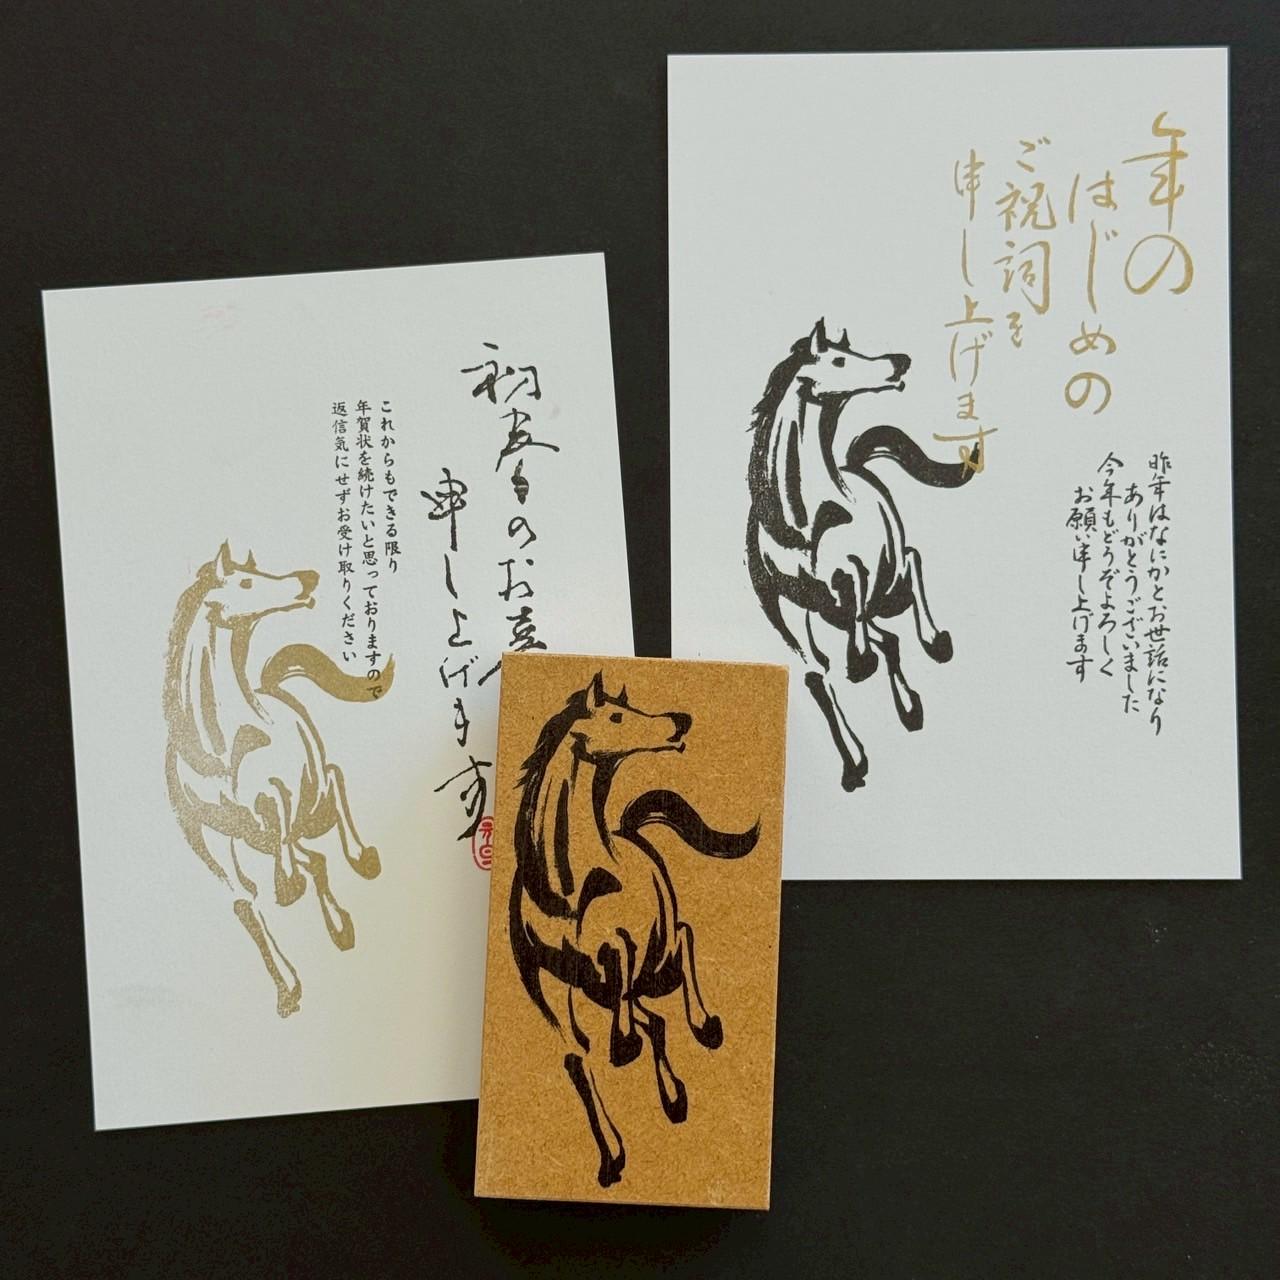 初春のお喜
申し上げます
これからもできる限り
年賀状を続けたいと思っておりますので
返信気にせずお受け取りください
年の
はじめの
ご祝詞を
申し上げます
昨年はなにかとお世話になり
ありがとうございました
今年もどうぞよろしく
お願い申し上げます